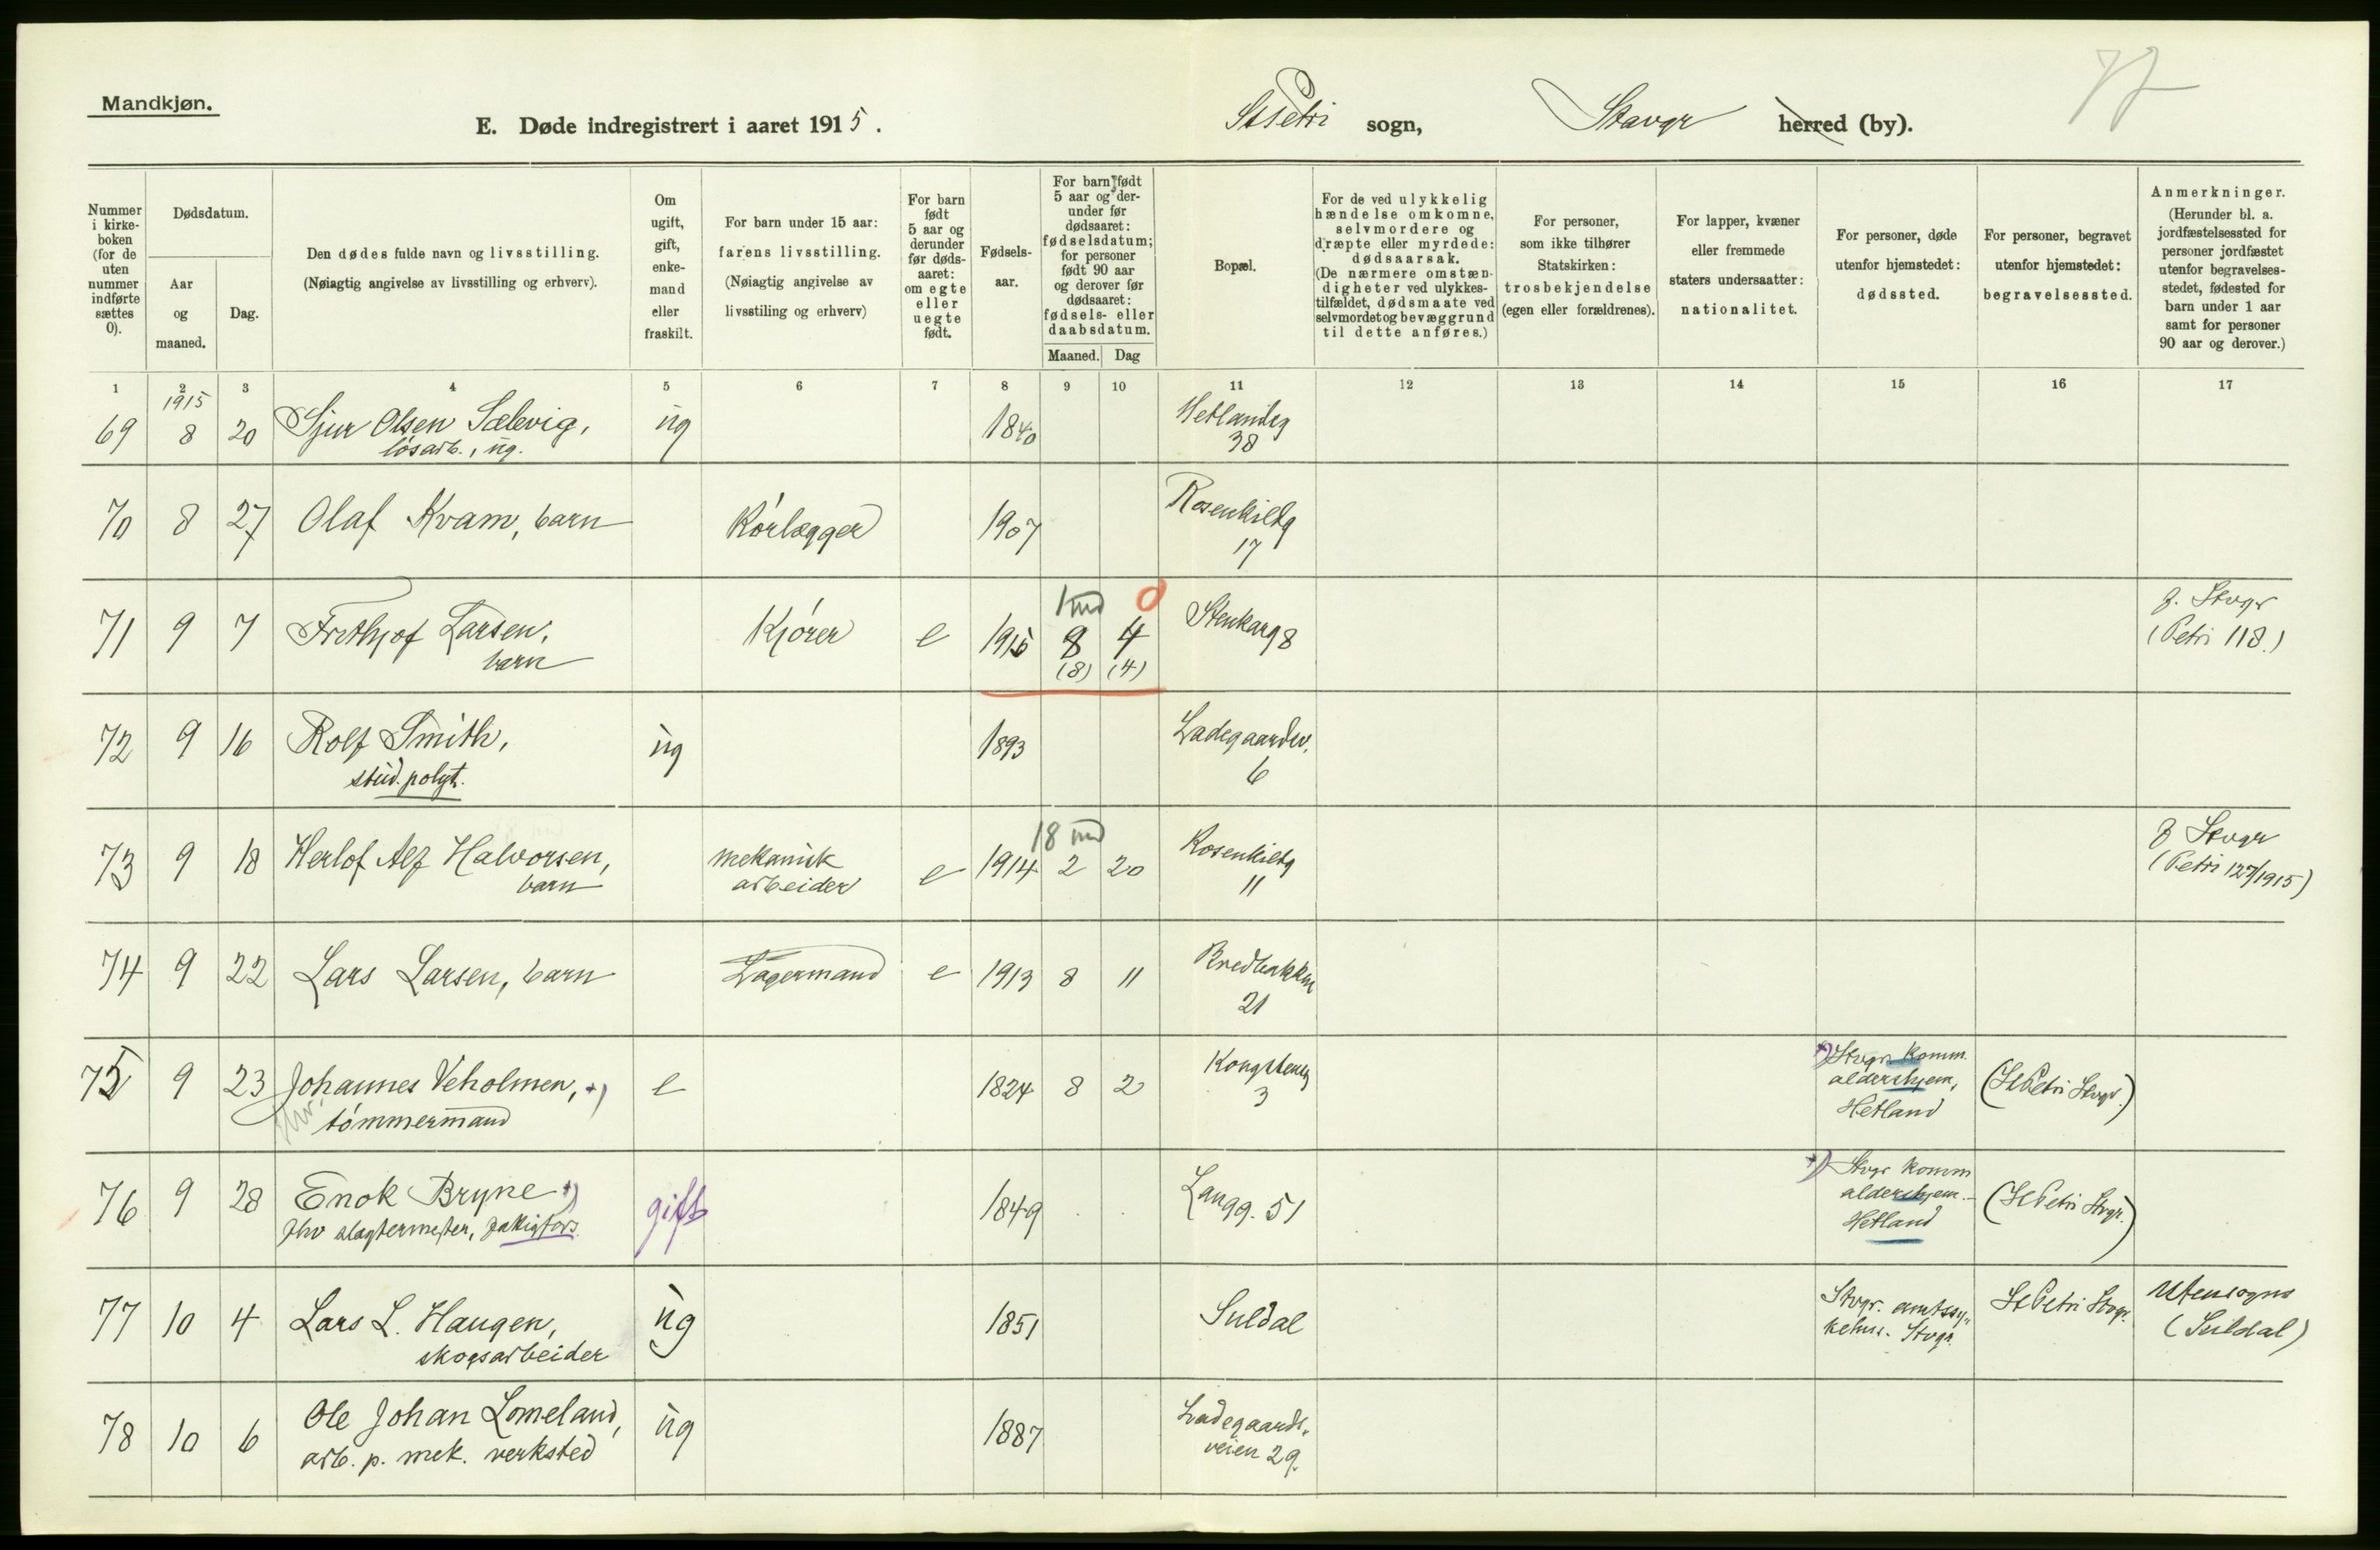 Mandkjøn.
E. Døde indregistrert i aaret 1915.
StPetri sogn, Stavgr herred (by).
77
Nummer i kirke-boken (for de uten nummer indførte sættes 0).
Dødsdatum.
Aar og maaned.
Dag.
Den dødes fulde navn og livsstilling.
(Nøiagtig angivelse av livsstilling og erhverv).
Om ugift, gift, enke-mand eller fraskilt.
For barn under 15 aar:
farens livsstilling.
(Nøiagtig angivelse av livsstiling og erhverv)
For barn født 5 aar og derunder før døds-aaret: om egte eller uegte født.
Fødsels-aar.
For barn født 5 aar og der-under før dødsaaret: fødselsdatum; for personer født 90 aar og derover før dødsaaret: fødsels- eller daabsdatum.
Maaned. Dag
Bopæl.
For de ved ulykkelig hændelse omkomne, selvmordere og dræpte eller myrdede: dødsaarsak.
(De nærmere omstæn-digheter ved ulykkes-tilfældet, dødsmaate ved selvmordet og bevæggrund til dette anføres.)
For personer, som ikke tilhører Statskirken: trosbekjendelse (egen eller forældrenes).
For lapper, kvæner eller fremmede staters undersaatter: nationalitet.
For personer, døde utenfor hjemstedet: dødssted.
For personer, begravet utenfor hjemstedet: begravelsessted.
Anmerkninger.
(Herunder bl. a. jordfæstelsessted for personer jordfæstet utenfor begravelses-stedet, fødested for barn under 1 aar samt for personer 90 aar og derover.)
1 2 3 4 5 6 7 8 9 10 11 12 13 14 15 16 17
1915
69 8 20 Sjur Olsen Sælevig, ug 1840 Hetlandsg
løsarb., ug. 38
70 8 27 Olaf Kvam, barn Rørlægger 1907 Rosenkildg
17
1 md 0
71 9 7 Frithjof Larsen, Kjører e 1915 8 4 Stenkarg 8 f. Stvgr
barn (8) (4) (Petri 118.)
72 9 16 Rolf Smith, ug 1893 Ladegaardsv.
stud. polyt. 6
18 md
73 9 18 Herlof Alf Halvorsen, mekanisk e 1914 2 20 Rosenkildg f Stvgr
barn arbeider 11 (Petri 127/1915)
74 9 22 Lars Larsen, barn Lagermand e 1913 8 11 Bredbakken
21
75 9 23 Johannes Veholmen, +) e 1824 8 2 Kongsteng +) Stvgr. Komm. aldershjem, Hetland (StPetri Stvgr.)
fhv. tømmermand 3
76 9 28 Enok Bryne +) gift 1849 Langg. 51 +) Stvgr Komm aldershjem. Hetland (StPetri Stvgr.)
fhv slagtermester, fattigfors.
77 10 4 Lars L. Haugen, ug 1851 Suldal Stvgr. amtssy- kehus. Stvgr. StPetri Stvgr. Utensogns
skogsarbeider (Suldal)
78 10 6 Ole Johan Lomeland, ug 1887 Ladegaards-
arb. p. mek. verksted veien 29.